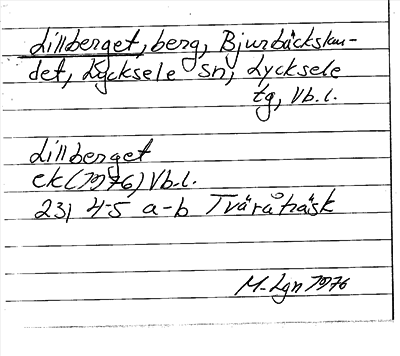 Lillberget, berg, Bjurbäckslan-
det, Lycksele sn, Lycksele
tg, Vb.l.
Lillberget
ek (1976) Vb.l.
23J 4-5 a-b Tväråträsk
M-Lgn 1976